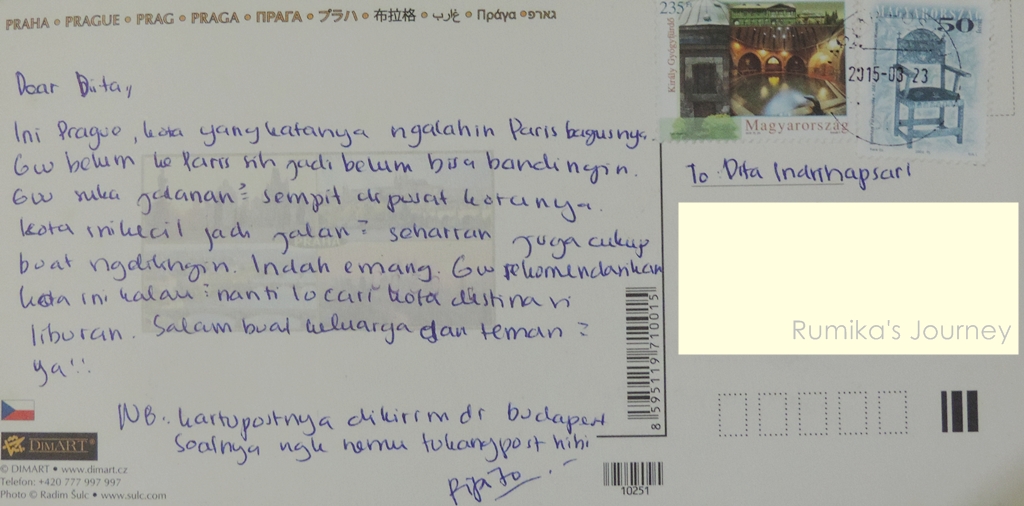 PRAHA • PRAGUE • PRAG • PRAGA • ПРАГА • プラハ • 布拉格 • Πράγα •
235
Király Gyógyfürdő
Magyarország
MAGYARORSZÁG
50
2015-03-23
Dear Dita,
Ini Prague, kota yang katanya ngalahin Paris bagusnya.
Gw belum ke Paris sih jadi belum bisa bandingin.
Gw suka jalanan² sempit di pusat kotanya.
Kota ini kecil jadi jalan² seharian juga cukup
buat ngelilingin. Indah emang. Gw rekomendasikan
kota ini kalau² nanti lo cari kota destinasi
liburan. Salam buat keluarga dan teman²
ya!!
NB: kartuposnya dikirim dr budapest
Soalnya ngk nemu tukangpost hihi
To: Dita Indrihapsari
Rumika's Journey
8595119710015
DIMART
© DIMART • www.dimart.cz
Telefon: +420 777 997 997
Photo © Radim Šulc • www.sulc.com
10251